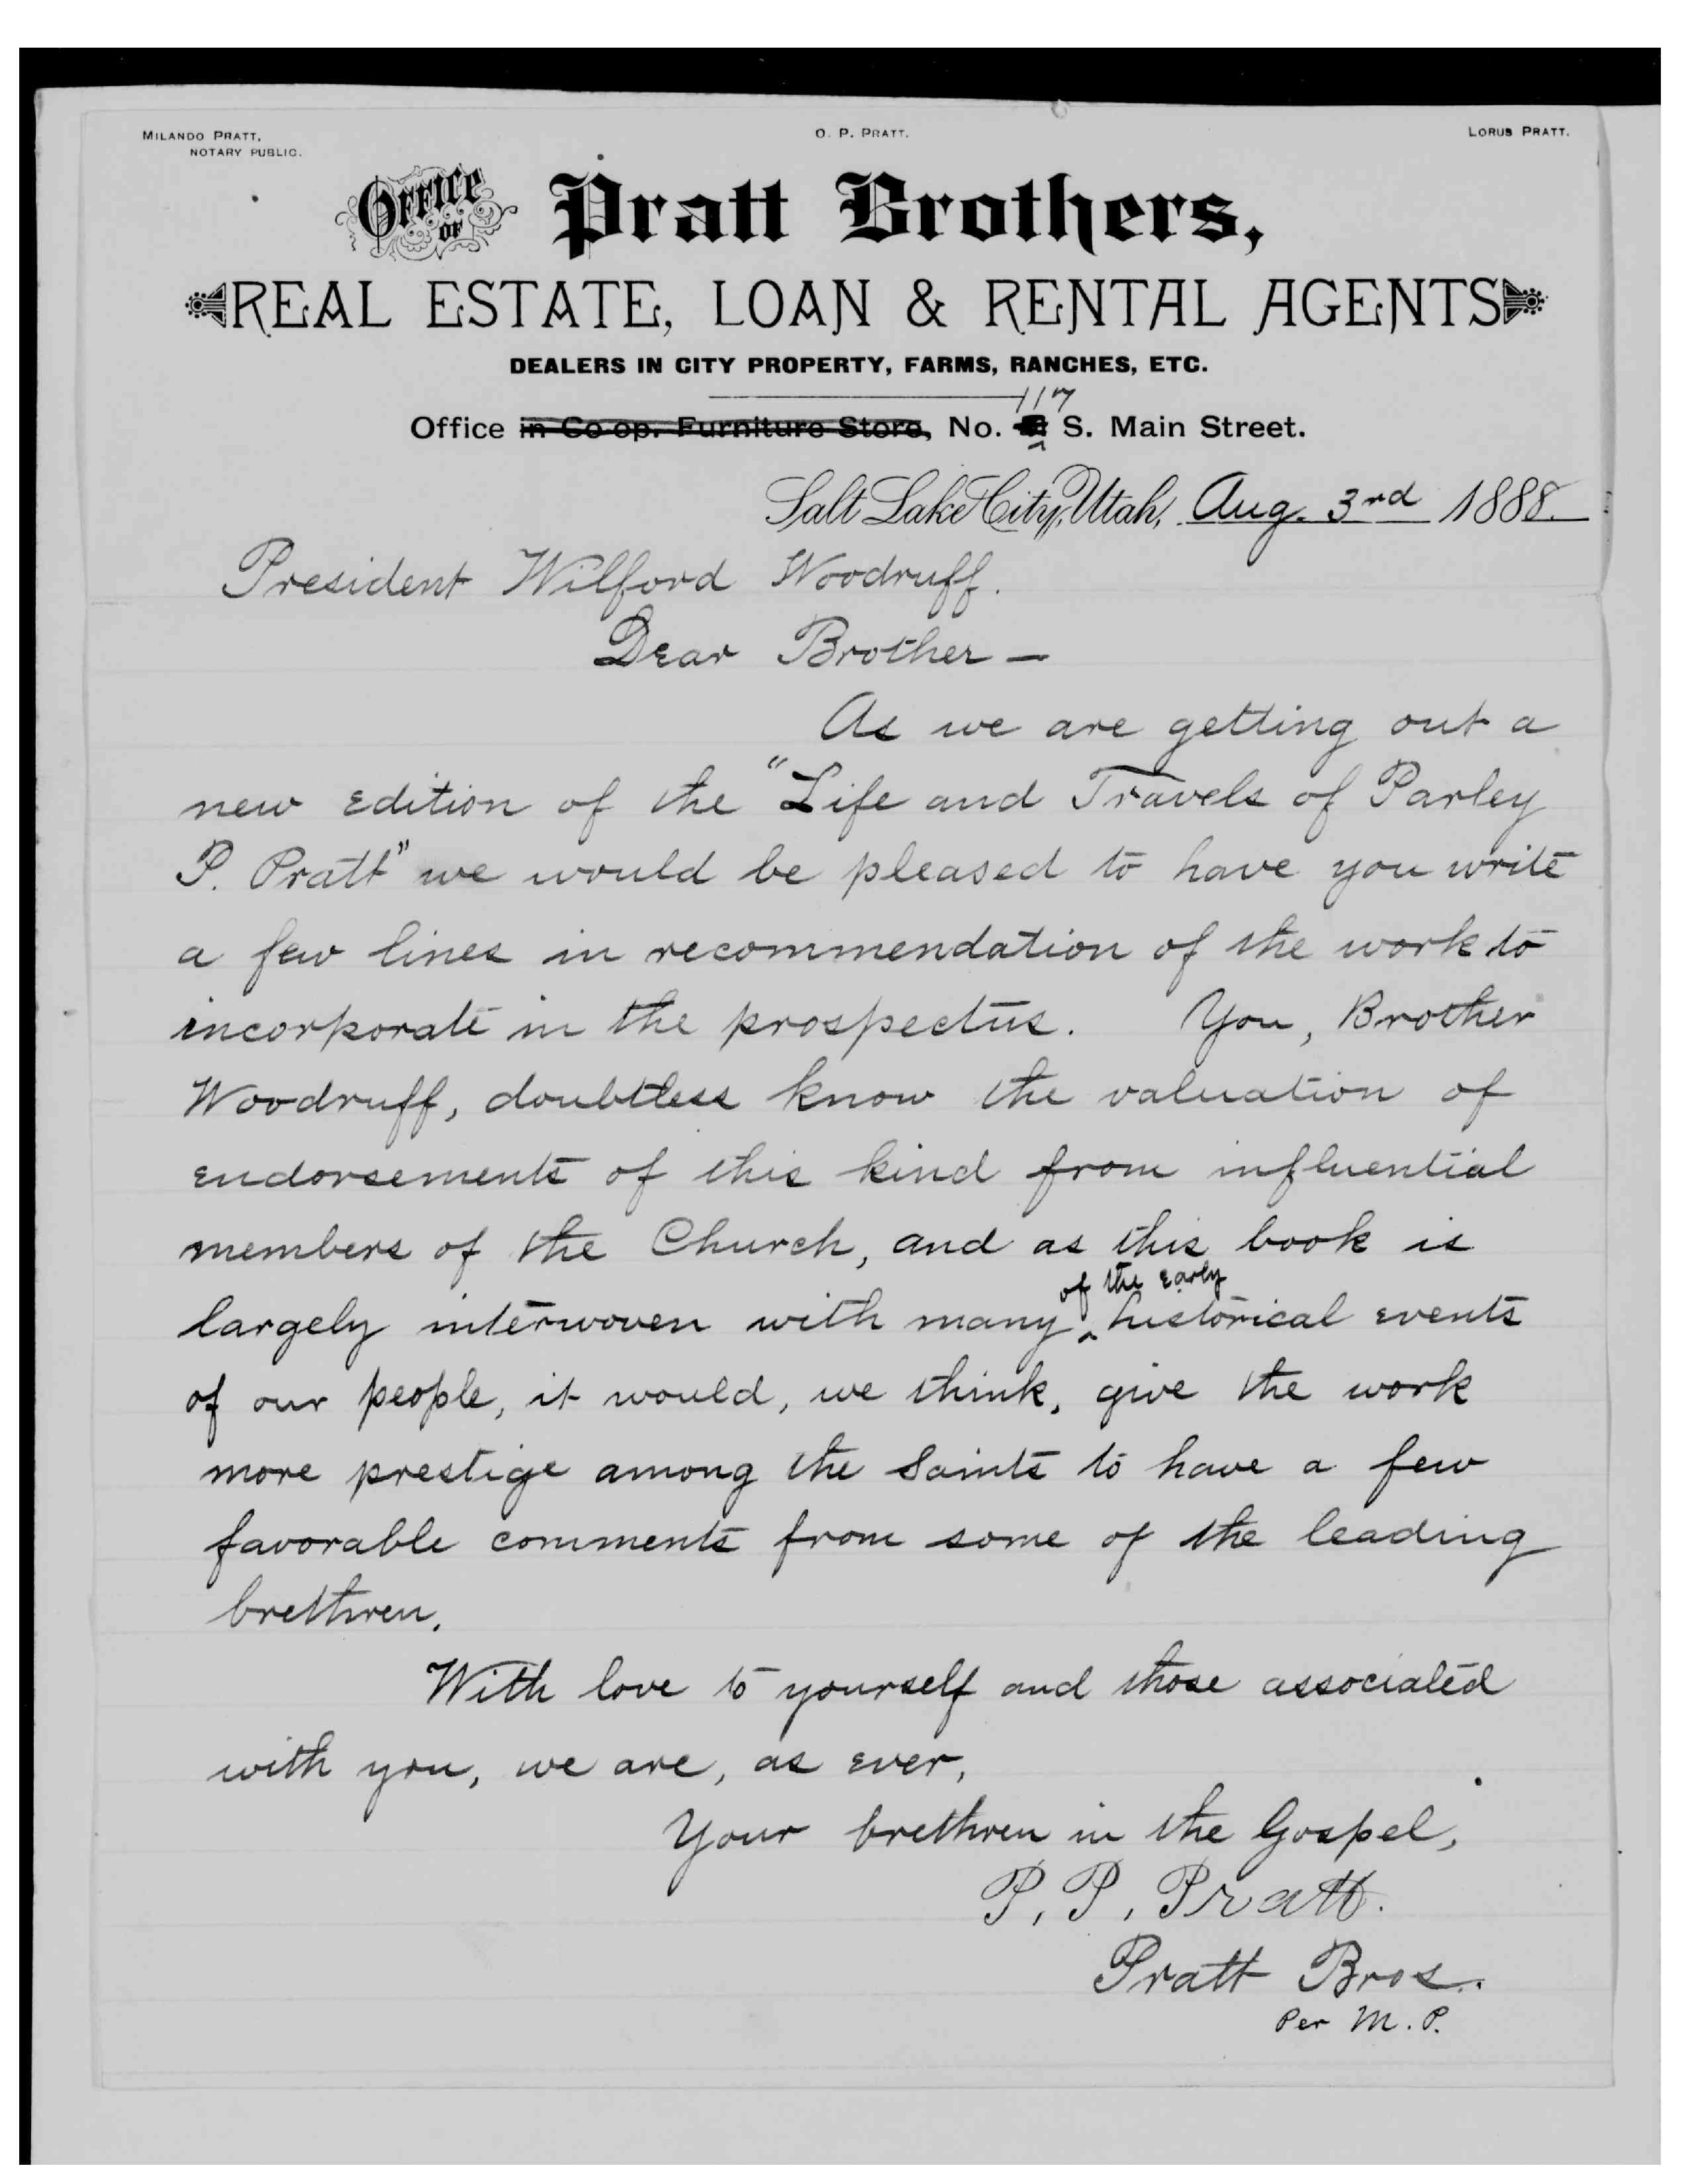 MILANDO PRATT,
NOTARY PUBLIC.
O. P. PRATT.
LORUS PRATT.
OFFICE OF Pratt Brothers,
REAL ESTATE, LOAN & RENTAL AGENTS
DEALERS IN CITY PROPERTY, FARMS, RANCHES, ETC.
117
Office in Co-op. Furniture Store, No. S. Main Street.
Salt Lake City, Utah, Aug. 3rd 1888.
President Wilford Woodruff.
Dear Brother —
As we are getting out a
new edition of the "Life and Travels of Parley
P. Pratt" we would be pleased to have you write
a few lines in recommendation of the work to
incorporate in the prospectus. You, Brother
Woodruff, doubtless know the valuation of
endorsements of this kind from influential
members of the Church, and as this book is
of the early
largely interwoven with many ^ historical events
of our people, it would, we think, give the work
more prestige among the Saints to have a few
favorable comments from some of the leading
brethren.
With love to yourself and those associated
with you, we are, as ever,
Your brethren in the Gospel,
P. P. Pratt.
Pratt Bros.
Per M. P.